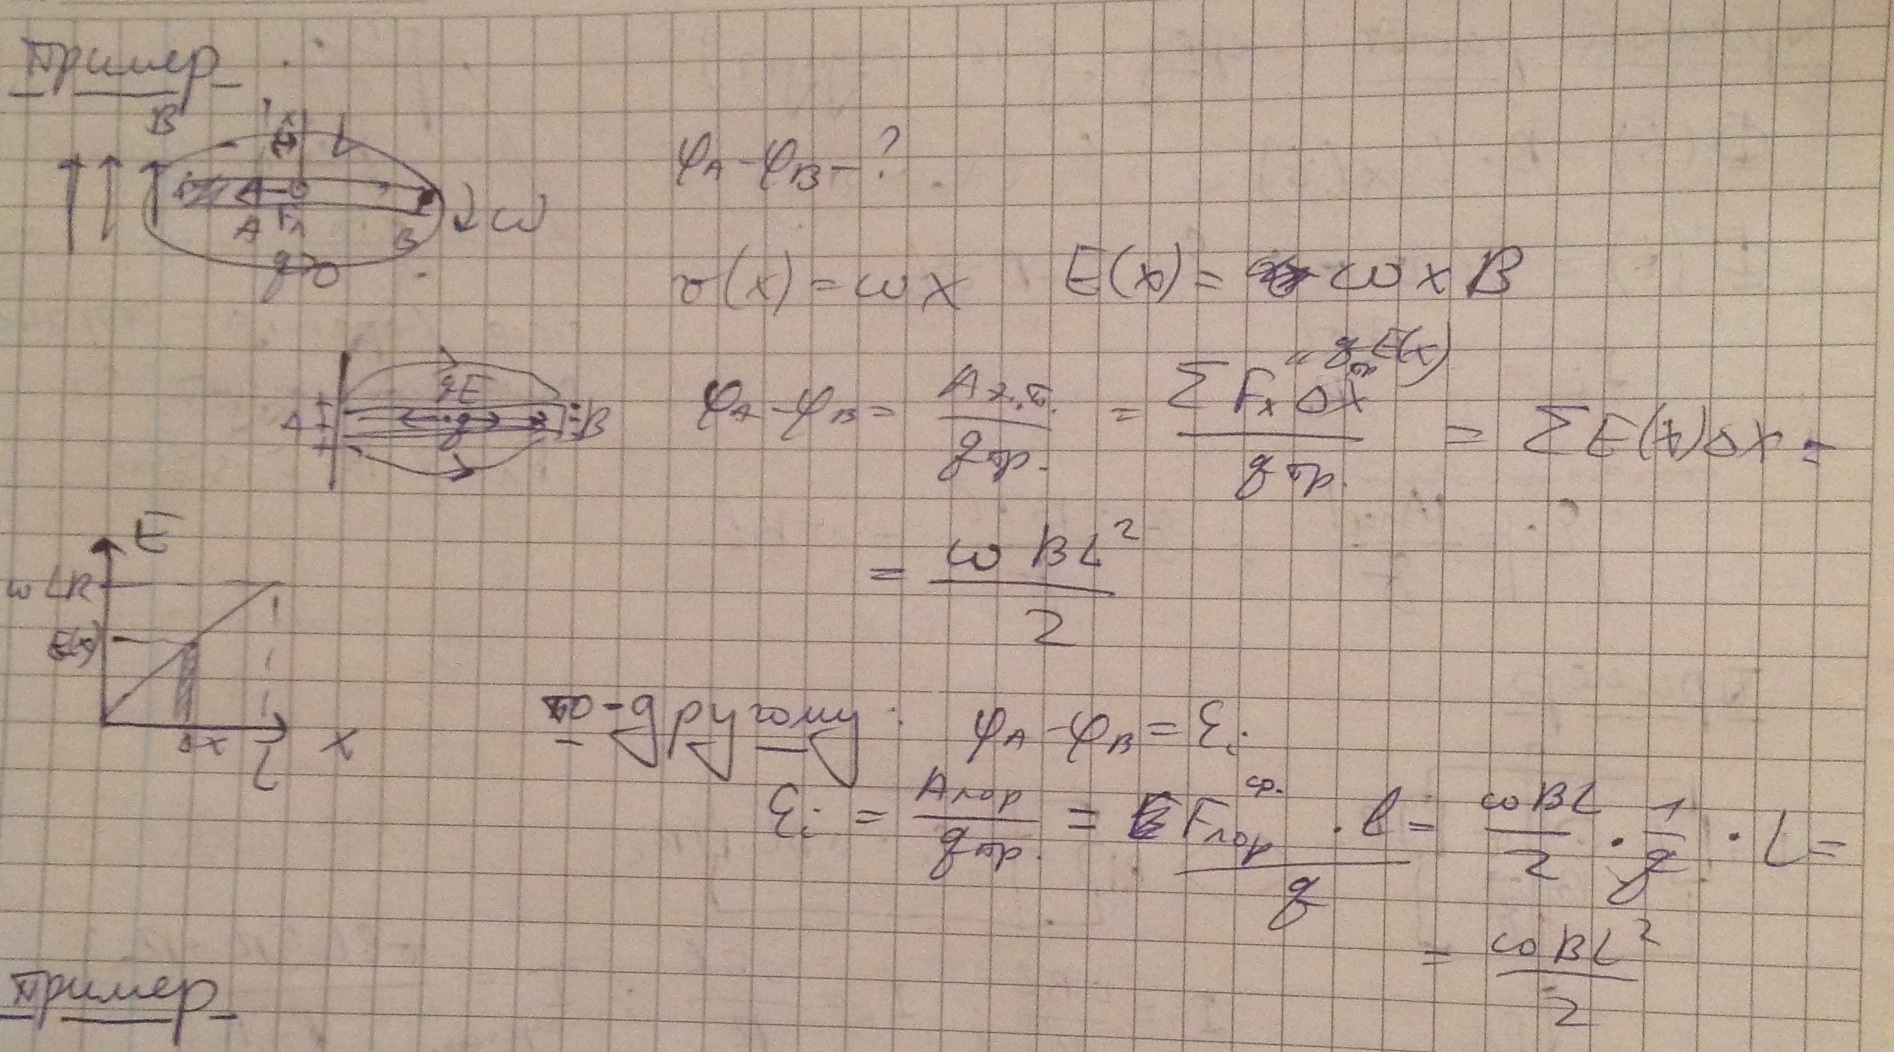 Пример
B
L
A
Fл
B
ω
q>0
φA - φB - ?
v(x) = ωx E(x) = ωxB
qE
A
q
B
φA - φB = Aэ.п. / qпр. = ΣFxΔx / qпр. = ΣE(x)Δx =
" qпрE(x)
= ωBL² / 2
E
ωLB
E(x)
Δx
L
x
по-другому: φA - φB = Ei
Ei = Aлор / qпр. = Fлор ср. · l / q = ωBL / 2 · 1 / q · L =
= ωBL² / 2
Пример